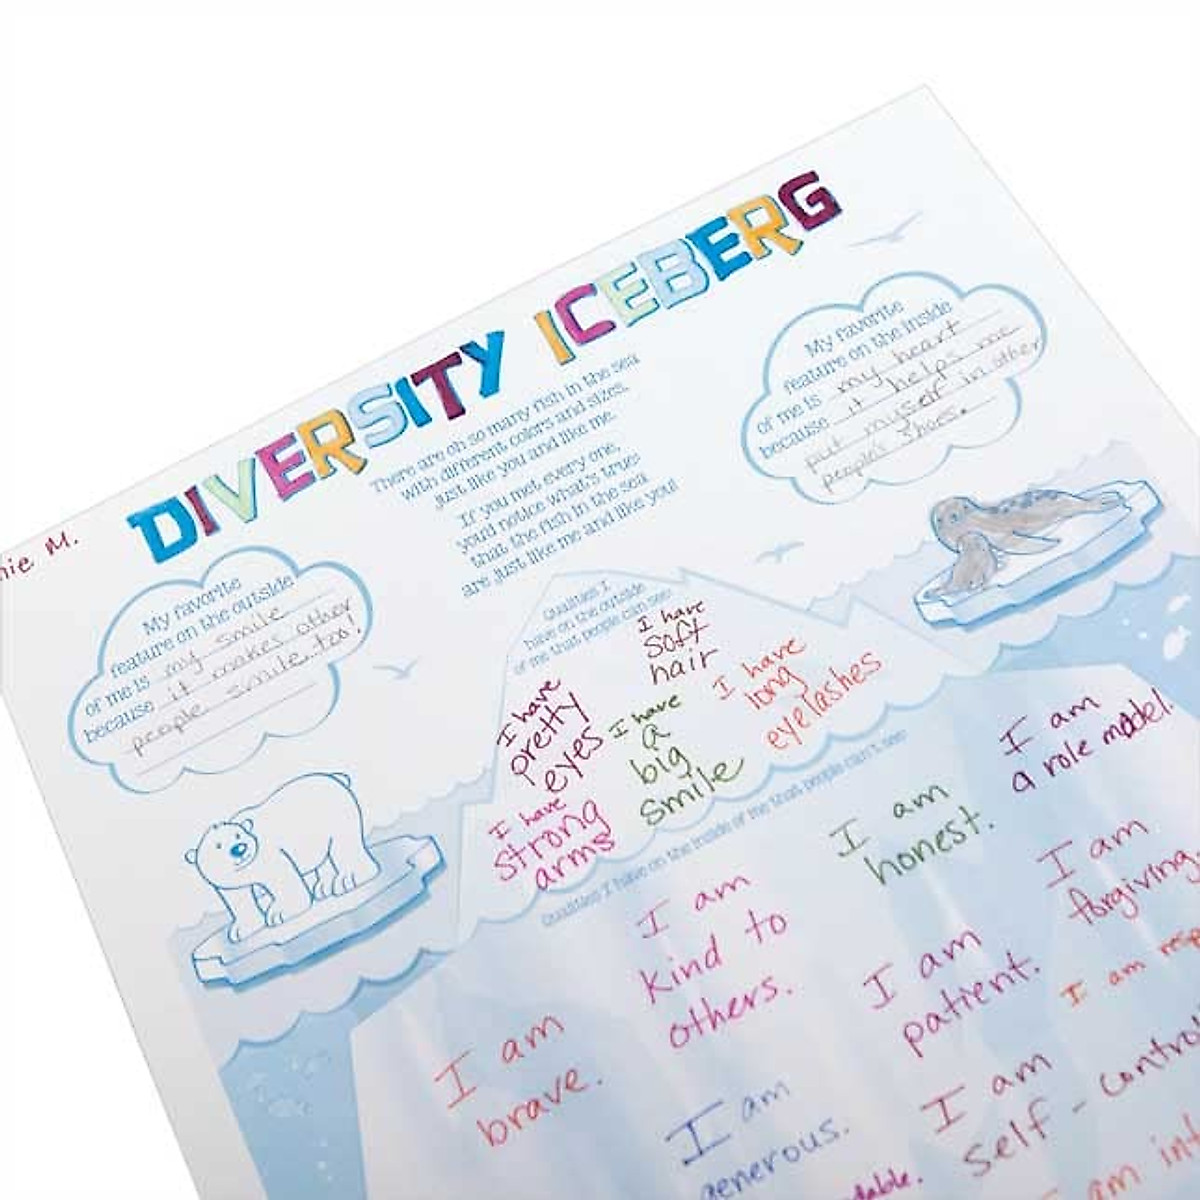 DIVERSITY ICEBERG
M.
There are oh so many fish in the sea
with different colors and sizes,
just like you and like me.
If you met every one,
you'd notice what's true:
that the fish in the sea
are just like me and like you!
My favorite
feature on the inside
of me is my heart
because it helps me
put myself in other
people's shoes.
My favorite
feature on the outside
of me is my smile
because it makes other
people smile, too!
Qualities I
have on the outside
of me that people can see:
I have
soft
hair
I have
long
eyelashes
I have
pretty
eyes
I have
a
big
smile
I have
strong
arms
Qualities I have on the inside of me that people can't see:
I am
a role model.
I am
honest.
I am
forgiving
I am
kind to
others.
I am
patient.
I am
I am
brave.
I am
self-control
I am
generous.
am